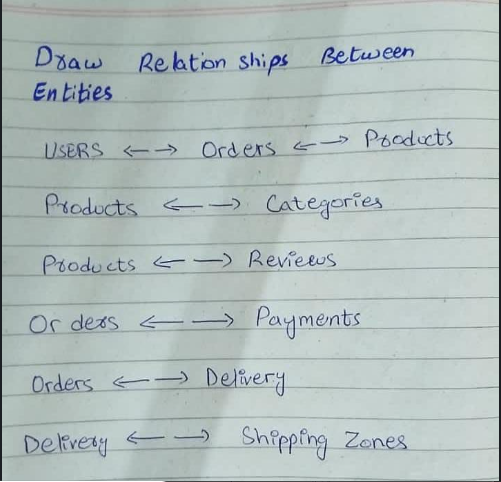 Draw Relation ships Between
Entities
USERS <--> Orders <--> Products
Products <--> Categories
Products <--> Reviews
Orders <--> Payments
Orders <--> Delivery
Delivery <--> Shipping Zones